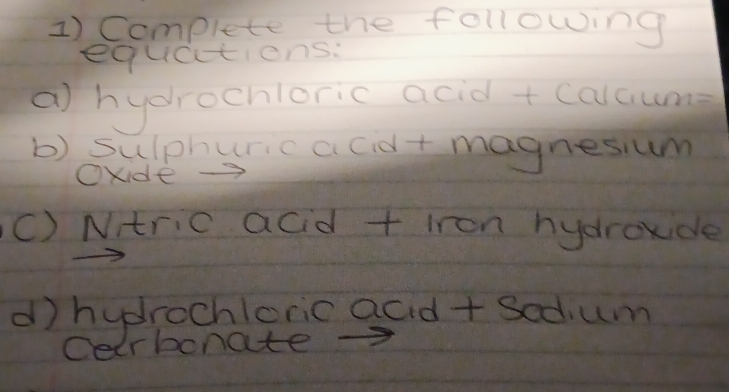 1) Complete the following
equations:
a) hydrochloric acid + Calcium=
b) Sulphuric acid + magnesium
Oxide →
C) Nitric acid + iron hydroxide
→
d) hydrochloric acid + Sodium
Carbonate →